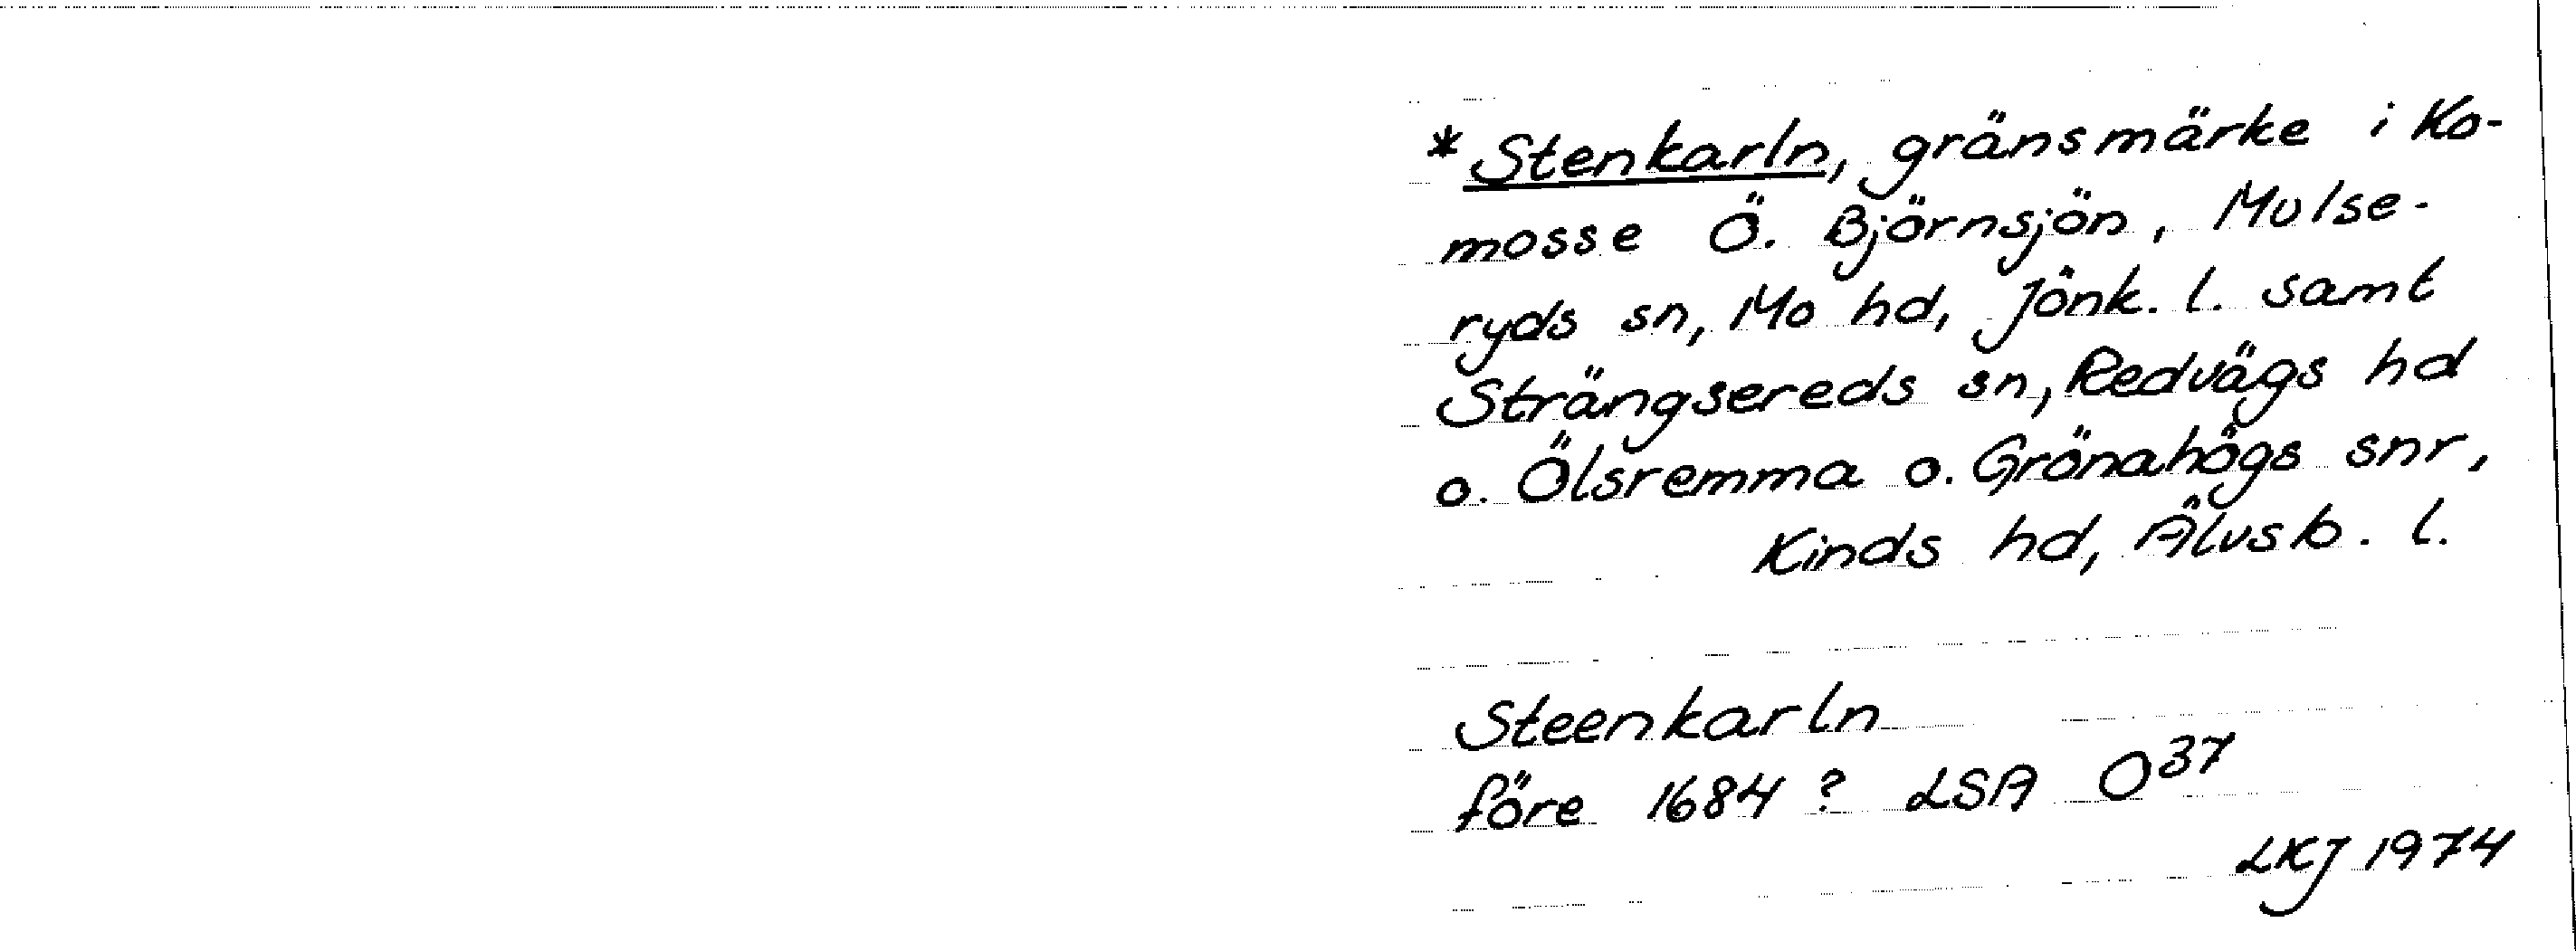 * Stenkarln, gränsmärke i Ko-
mosse Ö. Björnsjön, Mulse-
ryds sn, Mo hd, Jönk. l. samt
Strängsereds sn, Redvägs hd
o. Ölsremma o. Grönahögs snr,
Kinds hd, Älvsb. l.
Steenkarln
före 1684 ? LSA O37
LKJ 1974